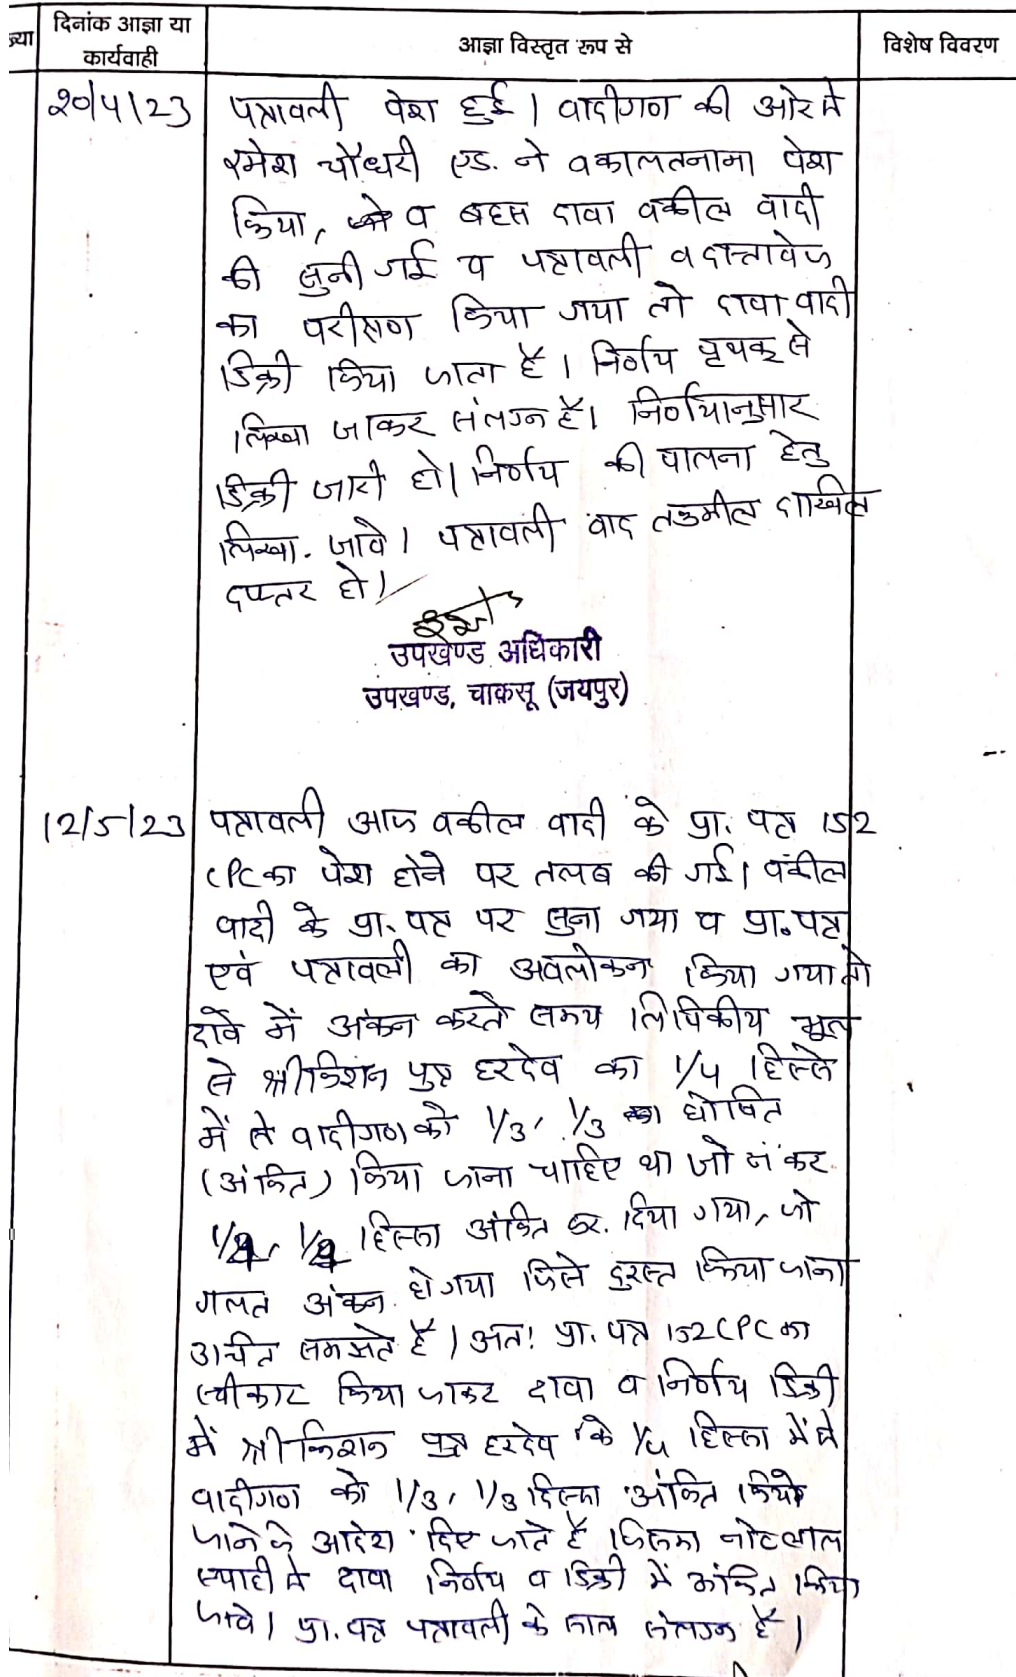 ख्या
दिनांक आज्ञा या
कार्यवाही
आज्ञा विस्तृत रूप से
विशेष विवरण
20/4/23
पत्रावली पेश हुई। वादीगण की ओर से
रमेश चौधरी एड. ने वकालतनामा पेश
किया, व बहस दावा वकील वादी
की सुनी गई व पत्रावली व दस्तावेज
का परीक्षण किया गया तो दावा वादी
डिक्री किया जाता है। निर्णय पृथक से
लिखा जाकर संलग्न है। निर्णयानुसार
डिक्री जारी हो। निर्णय की पालना हेतु
लिखा. जावे। पत्रावली बाद तकमील दाखिल
दफ्तर हो।
उपखण्ड अधिकारी
उपखण्ड, चाकसू (जयपुर)
12/5/23
पत्रावली आज वकील वादी के प्रा. पत्र 152
CPC का पेश होने पर तलब की गई। वकील
वादी के प्रा. पत्र पर सुना गया व प्रा. पत्र
एवं पत्रावली का अवलोकन किया गया तो
दावे में अंकन करते समय लिपिकीय भूल
से श्रीकिशन पुत्र हरदेव का 1/4 हिस्से
में से वादीगण को 1/3, 1/3 का घोषित
(अंकित) किया जाना चाहिए था जो न कर
हिस्सा अंकित कर दिया गया, जो
गलत अंकन हो गया जिसे दुरस्त किया जाना
उचित समझते है। अत: प्रा. पत्र 152 CPC का
स्वीकार किया जाकर दावा व निर्णय डिक्री
में श्रीकिशन पुत्र हरदेव के 1/4 हिस्सा में से
वादीगण को 1/3, 1/3 हिस्सा अंकित किये
जाने के आदेश दिए जाते है जिसका नोट लाल
स्याही से दावा निर्णय व डिक्री में अंकित किया
जावे। प्रा. पत्र पत्रावली के साथ संलग्न है।